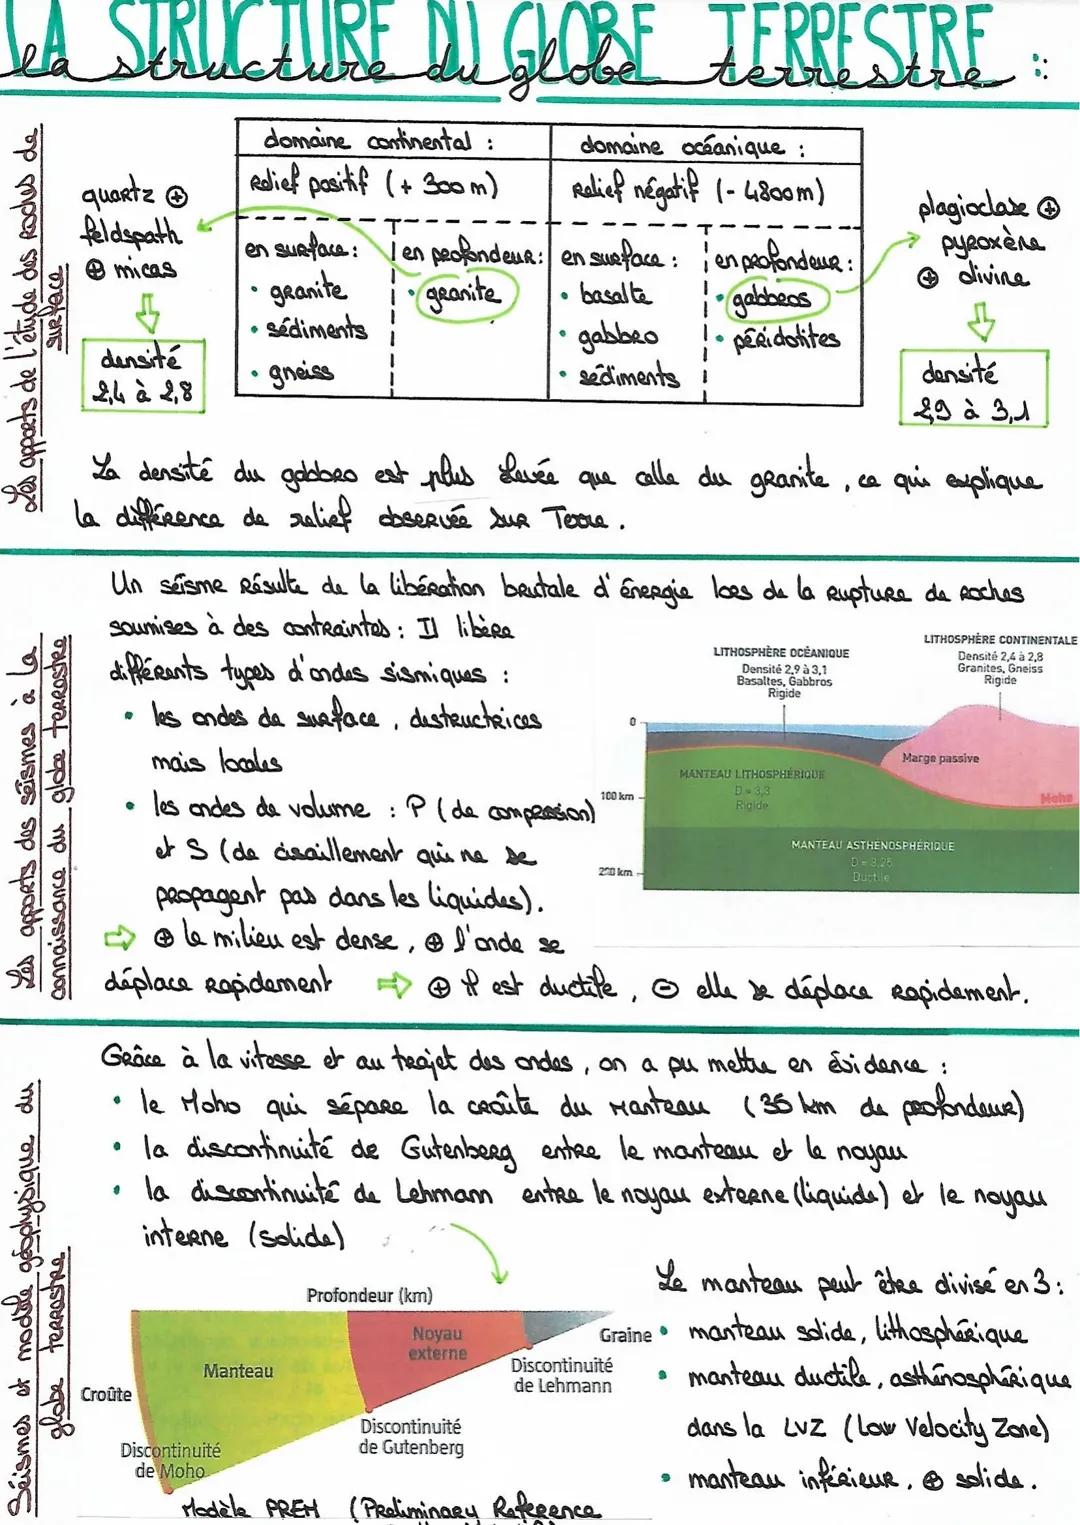 LA STRUCTURE DU GLOBE TERRESTRE
la structure du globe terrestre :
Les apports de l'étude des roches de
surface
quartz ⊕
feldspath
⊕ micas
densité
2,4 à 2,8
domaine continental :
Relief positif (+ 300 m)
en surface :
• granite
• sédiments
• gneiss
en profondeur :
• granite
domaine océanique :
Relief négatif (- 4800m)
en surface :
• basalte
• gabbro
• sédiments
en profondeur :
• gabbros
• péridotites
plagioclase ⊕
pyroxène
⊕ olivine
densité
2,9 à 3,1
La densité du gabbro est plus élevée que celle du granite, ce qui explique
la différence de relief observée sur Terre.
Les apports des séismes à la
connaissance du globe terrestre
Un séisme résulte de la libération brutale d'énergie lors de la rupture de roches
soumises à des contraintes : Il libère
différents types d'ondes sismiques :
• les ondes de surface, destructrices
mais locales
• les ondes de volume : P (de compression)
et S (de cisaillement qui ne se
propagent pas dans les liquides).
⇨ ⊕ le milieu est dense, ⊕ l'onde se
déplace rapidement ⇨ ⊕ il est ductile, ⊖ elle se déplace rapidement.
LITHOSPHÈRE OCÉANIQUE
Densité 2,9 à 3,1
Basaltes, Gabbros
Rigide
LITHOSPHÈRE CONTINENTALE
Densité 2,4 à 2,8
Granites, Gneiss
Rigide
0
Marge passive
MANTEAU LITHOSPHÉRIQUE
D = 3,3
Rigide
100 km
Moho
MANTEAU ASTHÉNOSPHÉRIQUE
D = 3,25
Ductile
200 km
Séismes et modèle géophysique du
globe terrestre
Grâce à la vitesse et au trajet des ondes, on a pu mettre en évidence :
• le Moho qui sépare la croûte du manteau (35 km de profondeur)
• la discontinuité de Gutenberg entre le manteau et le noyau
• la discontinuité de Lehmann entre le noyau externe (liquide) et le noyau
interne (solide)
Profondeur (km)
Croûte
Manteau
Noyau
externe
Graine
Discontinuité
de Lehmann
Discontinuité
de Gutenberg
Discontinuité
de Moho
Modèle PREM (Preliminary Reference
Le manteau peut être divisé en 3 :
• manteau solide, lithosphérique
• manteau ductile, asthénosphérique
dans la LVZ (Low Velocity Zone)
• manteau inférieur, ⊕ solide.